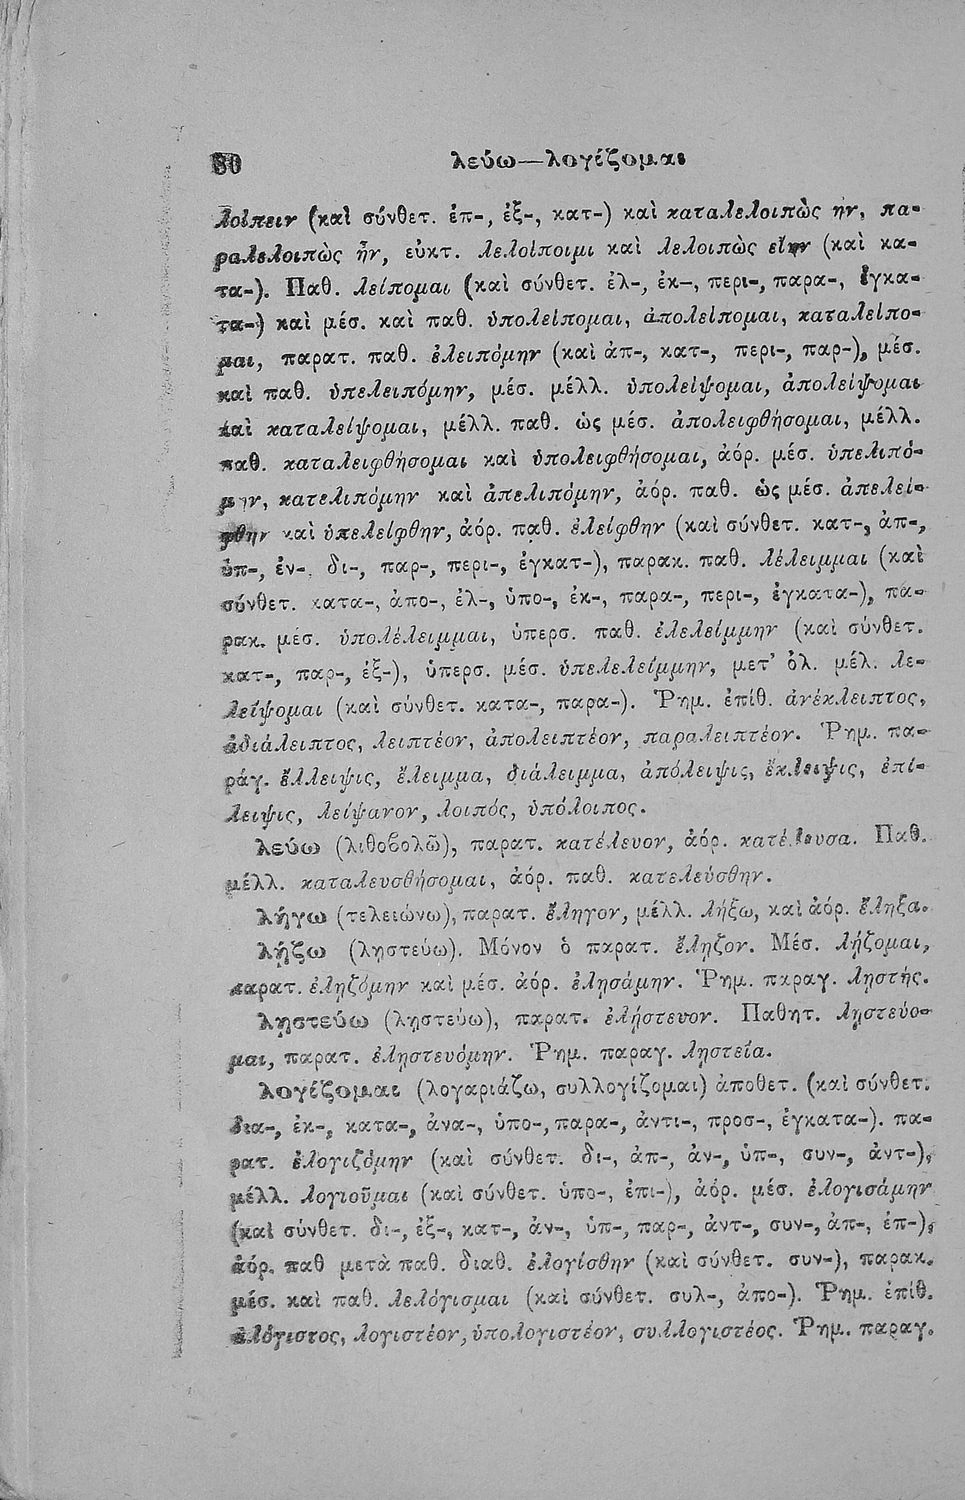 80 λεύω—λογίζομαι
λοίπειν (καὶ σύνθετ. ἐπ-, ἐξ-, κατ-) καὶ καταλελοιπὼς ἦν, πα-
ραλελοιπὼς ἦν, εὐκτ. λελοίποιμι καὶ λελοιπὼς εἴην (καὶ κα-
τα-). Παθ. λείπομαι (καὶ σύνθετ. ἐλ-, ἐκ-, περι-, παρα-, ἐγκα-
τα-) καὶ μέσ. καὶ παθ. ὑπολείπομαι, ἀπολείπομαι, καταλείπο-
μαι, παρατ. παθ. ἐλειπόμην (καὶ ἀπ-, κατ-, περι-, παρ-), μέσ.
καὶ παθ. ὑπελειπόμην, μέσ. μέλλ. ὑπολείψομαι, ἀπολείψομαι
καὶ καταλείψομαι, μέλλ. παθ. ὡς μέσ. ἀπολειφθήσομαι, μέλλ.
παθ. καταλειφθήσομαι καὶ ὑπολειφθήσομαι, ἀόρ. μέσ. ὑπελιπό-
μην, κατελιπόμην καὶ ἀπελιπόμην, ἀόρ. παθ. ὡς μέσ. ἀπελεί-
φθην καὶ ὑπελείφθην, ἀόρ. παθ. ἐλείφθην (καὶ σύνθετ. κατ-, ἀπ-,
ὑπ-, ἐν-, δι-, παρ-, περι-, ἐγκατ-), παρακ. παθ. λέλειμμαι (καὶ
σύνθετ. κατα-, ἀπο-, ἐλ-, ὑπο-, ἐκ-, παρα-, περι-, ἐγκατα-), πα-
ρακ. μέσ. ὑπολέλειμμαι, ὑπερσ. παθ. ἐλελείμμην (καὶ σύνθετ.
κατ-, παρ-, ἐξ-), ὑπερσ. μέσ. ὑπελελείμμην, μετ’ ὀλ. μέλ. λε-
λείψομαι (καὶ σύνθετ. κατα-, παρα-). Ῥημ. ἐπίθ. ἀνέκλειπτος,
ἀδιάλειπτος, λειπτέον, ἀπολειπτέον, παραλειπτέον. Ῥημ. πα-
ράγ. ἔλλειψις, ἔλειμμα, διάλειμμα, ἀπόλειψις, ἔκλειψις, ἐπί-
λειψις, λείψανον, λοιπός, ὑπόλοιπος.
λεύω (λιθοβολῶ), παρατ. κατέλευον, ἀόρ. κατέλευσα. Παθ.
μέλλ. καταλευσθήσομαι, ἀόρ. παθ. κατελεύσθην.
λήγω (τελειώνω), παρατ. ἔληγον, μέλλ. λήξω, καὶ ἀόρ. ἔληξα.
λῄζω (ληστεύω). Μόνον ὁ παρατ. ἔληζον. Μέσ. λῄζομαι,
παρατ. ἐληζόμην καὶ μέσ. ἀόρ. ἐλησάμην. Ῥημ. παραγ. λῃστής.
λῃστεύω (λῃστεύω), παρατ. ἐλῄστευον. Παθητ. λῃστεύο-
μαι, παρατ. ἐλῃστευόμην. Ῥημ. παραγ. λῃστεία.
λογίζομαι (λογαριάζω, συλλογίζομαι) ἀποθετ. (καὶ σύνθετ.
δια-, ἐκ-, κατα-, ἀνα-, ὑπο-, παρα-, ἀντι-, προσ-, ἐγκατα-). πα-
ρατ. ἐλογιζόμην (καὶ σύνθετ. δι-, ἀπ-, ἀν-, ὑπ-, συν-, ἀντ-),
μέλλ. λογιοῦμαι (καὶ σύνθετ. ὑπο-, ἐπι-), ἀόρ. μέσ. ἐλογισάμην
(καὶ σύνθετ. δι-, ἐξ-, κατ-, ἀν-, ὑπ-, παρ-, ἀντ-, συν-, ἀπ-, ἐπ-),
ἀόρ. παθ μετὰ παθ. διαθ. ἐλογίσθην (καὶ σύνθετ. συν-), παρακ.
μέσ. καὶ παθ. λελόγισμαι (καὶ σύνθετ. συλ-, ἀπο-). Ῥημ. ἐπίθ.
ἀλόγιστος, λογιστέον, ὑπολογιστέον, συλλογιστέος. Ῥημ. παραγ.